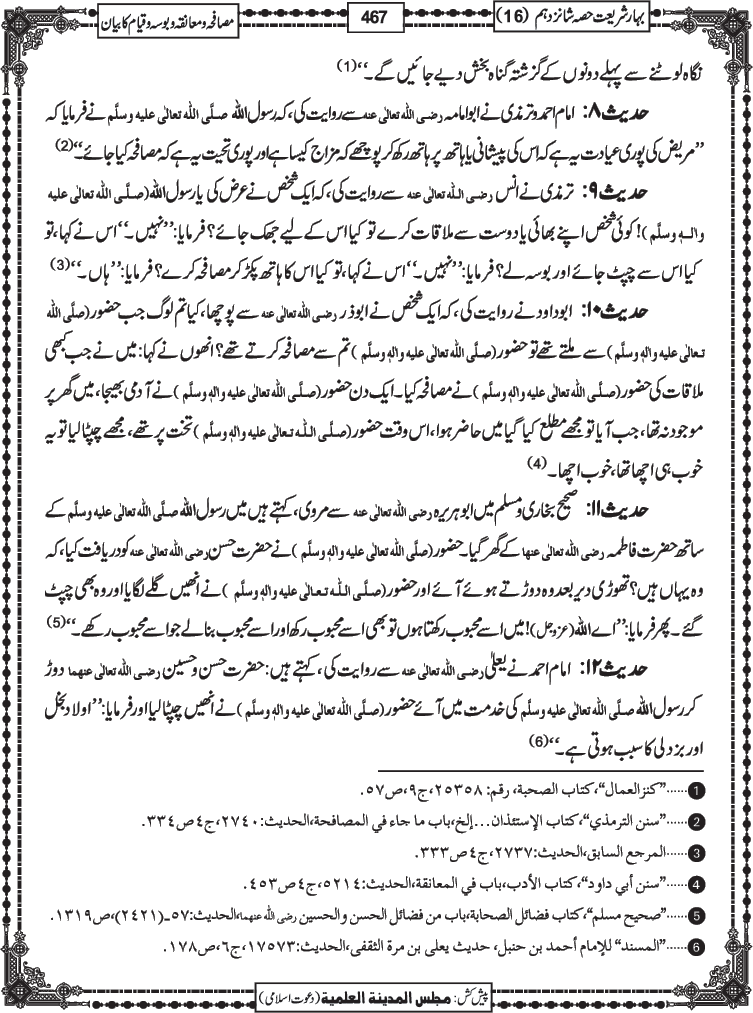 بہارِ شریعت حصہ شانزدہم (16)
467
مصافحہ و معانقہ و بوسہ و قیام کا بیان
نگاہ لوٹنے سے پہلے دونوں کے گزشتہ گناہ بخش دیے جائیں گے۔‘‘(1)
حدیث ۸: امام احمد و ترمذی نے ابوامامہ رضی اللہ تعالٰی عنہ سے روایت کی، کہ رسول اللہ صلَّی اللہ تعالٰی علیہ وسلَّم نے فرمایا کہ
’’مریض کی پوری عیادت یہ ہے کہ اس کی پیشانی یا ہاتھ پر ہاتھ رکھ کر پوچھے کہ مزاج کیسا ہے اور پوری تحیت یہ ہے کہ مصافحہ کیا جائے۔‘‘(2)
حدیث ۹: ترمذی نے انس رضی اللہ تعالٰی عنہ سے روایت کی، کہ ایک شخص نے عرض کی یارسول اللہ (صلَّی اللہ تعالٰی علیہ
واٰلہٖ وسلَّم)! کوئی شخص اپنے بھائی یا دوست سے ملاقات کرے تو کیا اس کے لیے جھک جائے؟ فرمایا: ’’نہیں۔‘‘ اس نے کہا، تو
کیا اس سے چپٹ جائے اور بوسہ لے؟ فرمایا: ’’نہیں۔‘‘ اس نے کہا، تو کیا اس کا ہاتھ پکڑ کر مصافحہ کرے؟ فرمایا: ’’ہاں۔‘‘(3)
حدیث ۱۰: ابوداود نے روایت کی، کہ ایک شخص نے ابوذر رضی اللہ تعالٰی عنہ سے پوچھا، کیا تم لوگ جب حضور (صلَّی اللہ
تعالٰی علیہ واٰلہٖ وسلَّم) سے ملتے تھے تو حضور (صلَّی اللہ تعالٰی علیہ واٰلہٖ وسلَّم) تم سے مصافحہ کرتے تھے؟ انھوں نے کہا: میں نے جب کبھی
ملاقات کی حضور (صلَّی اللہ تعالٰی علیہ واٰلہٖ وسلَّم) نے مصافحہ کیا۔ ایک دن حضور (صلَّی اللہ تعالٰی علیہ واٰلہٖ وسلَّم) نے آدمی بھیجا، میں گھر پر
موجود نہ تھا، جب آیا تو مجھے مطلع کیا گیا میں حاضر ہوا، اس وقت حضور (صلَّی اللہ تعالٰی علیہ واٰلہٖ وسلَّم) تخت پر تھے، مجھے چپٹا لیا تو یہ
خوب ہی اچھا تھا، خوب اچھا۔(4)
حدیث ۱۱: صحیح بخاری و مسلم میں ابوہریرہ رضی اللہ تعالٰی عنہ سے مروی، کہتے ہیں میں رسول اللہ صلَّی اللہ تعالٰی علیہ وسلَّم کے
ساتھ حضرت فاطمہ رضی اللہ تعالٰی عنھا کے گھر گیا۔ حضور (صلَّی اللہ تعالٰی علیہ واٰلہٖ وسلَّم) نے حضرت حسن رضی اللہ تعالٰی عنہ کو دریافت کیا، کہ
وہ یہاں ہیں؟ تھوڑی دیر بعد وہ دوڑتے ہوئے آئے اور حضور (صلَّی اللہ تعالٰی علیہ واٰلہٖ وسلَّم) نے انھیں گلے لگایا اور وہ بھی چپٹ
گئے۔ پھر فرمایا: ’’اے اللہ (عزوجل)! میں اسے محبوب رکھتا ہوں تو بھی اسے محبوب رکھ اور اسے محبوب بنالے جو اسے محبوب رکھے۔‘‘(5)
حدیث ۱۲: امام احمد نے یعلیٰ رضی اللہ تعالٰی عنہ سے روایت کی، کہتے ہیں: حضرت حسن و حسین رضی اللہ تعالٰی عنھما دوڑ
کر رسول اللہ صلَّی اللہ تعالٰی علیہ وسلَّم کی خدمت میں آئے حضور (صلَّی اللہ تعالٰی علیہ واٰلہٖ وسلَّم) نے انھیں چپٹا لیا اور فرمایا: ’’اولاد بُخل
اور بزدلی کا سبب ہوتی ہے۔‘‘(6)
1 ......”کنزالعمال“، کتاب الصحبة، رقم: ۲۵۳۵۸، ج۹، ص۵۷.
2 ......”سنن الترمذي“، کتاب الإستئذان...إلخ، باب ما جاء في المصافحة، الحدیث: ۲۷۴۰، ج۴، ص۳۳۴.
3 ......المرجع السابق، الحدیث: ۲۷۳۷، ج۴، ص۳۳۳.
4 ......”سنن أبي داود“، کتاب الأدب، باب في المعانقة، الحدیث: ۵۲۱۴، ج۴، ص۴۵۳.
5 ......”صحیح مسلم“، کتاب فضائل الصحابة، باب من فضائل الحسن والحسین رضی اللہ عنھما، الحدیث: ۵۷۔(۲۴۲۱)، ص۱۳۱۹.
6 ......”المسند“ للإمام أحمد بن حنبل، حدیث یعلی بن مرة الثقفی، الحدیث: ۱۷۵۷۳، ج۶، ص۱۷۸.
پیش کش: مجلس المدینة العلمیة (دعوت اسلامی)